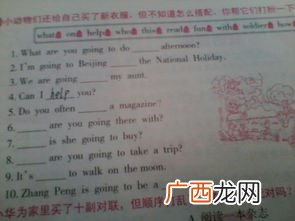 小动物们还给自己买了新衣服，但不知道怎么搭配，你帮它们打扮一下
what on help who this read fun with soldier how
1. What are you going to do ______ afternoon?
2. I'm going to Beijing ______ the National Holiday.
3. We are going ______ my aunt.
4. Can I help you?
5. Do you often ______ a magazine?
6. ______ are you going there with?
7. ______ is she going to buy?
8. ______ are you going to take a trip?
9. It's ______ to walk on the moon.
10. Zhang Peng is going to be a
华为家里买了十副对联，但顺序 对吗?
A 阅读一本杂志
广西龙网